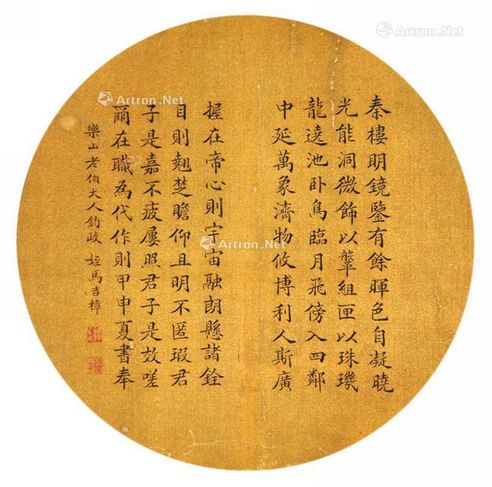 秦樓明鏡鑒有餘暉色自凝曉
光能洞微飾以鞶組匣以珠璣
龍遶池卧鳥臨月飛傍入四鄰
中延萬象濟物攸博利人斯廣
握在帝心則宇宙融朗懸諸銓
目則翹楚瞻仰且明不匿瑕君
子是嘉不疲屢照君子是效嗟
爾在職為代作則甲申夏書奉
樂山老伯大人鈞政 姪馬吉樟
Artron.Net
Artron.Net
Artron.Net
Artron.Net
Artron.Net